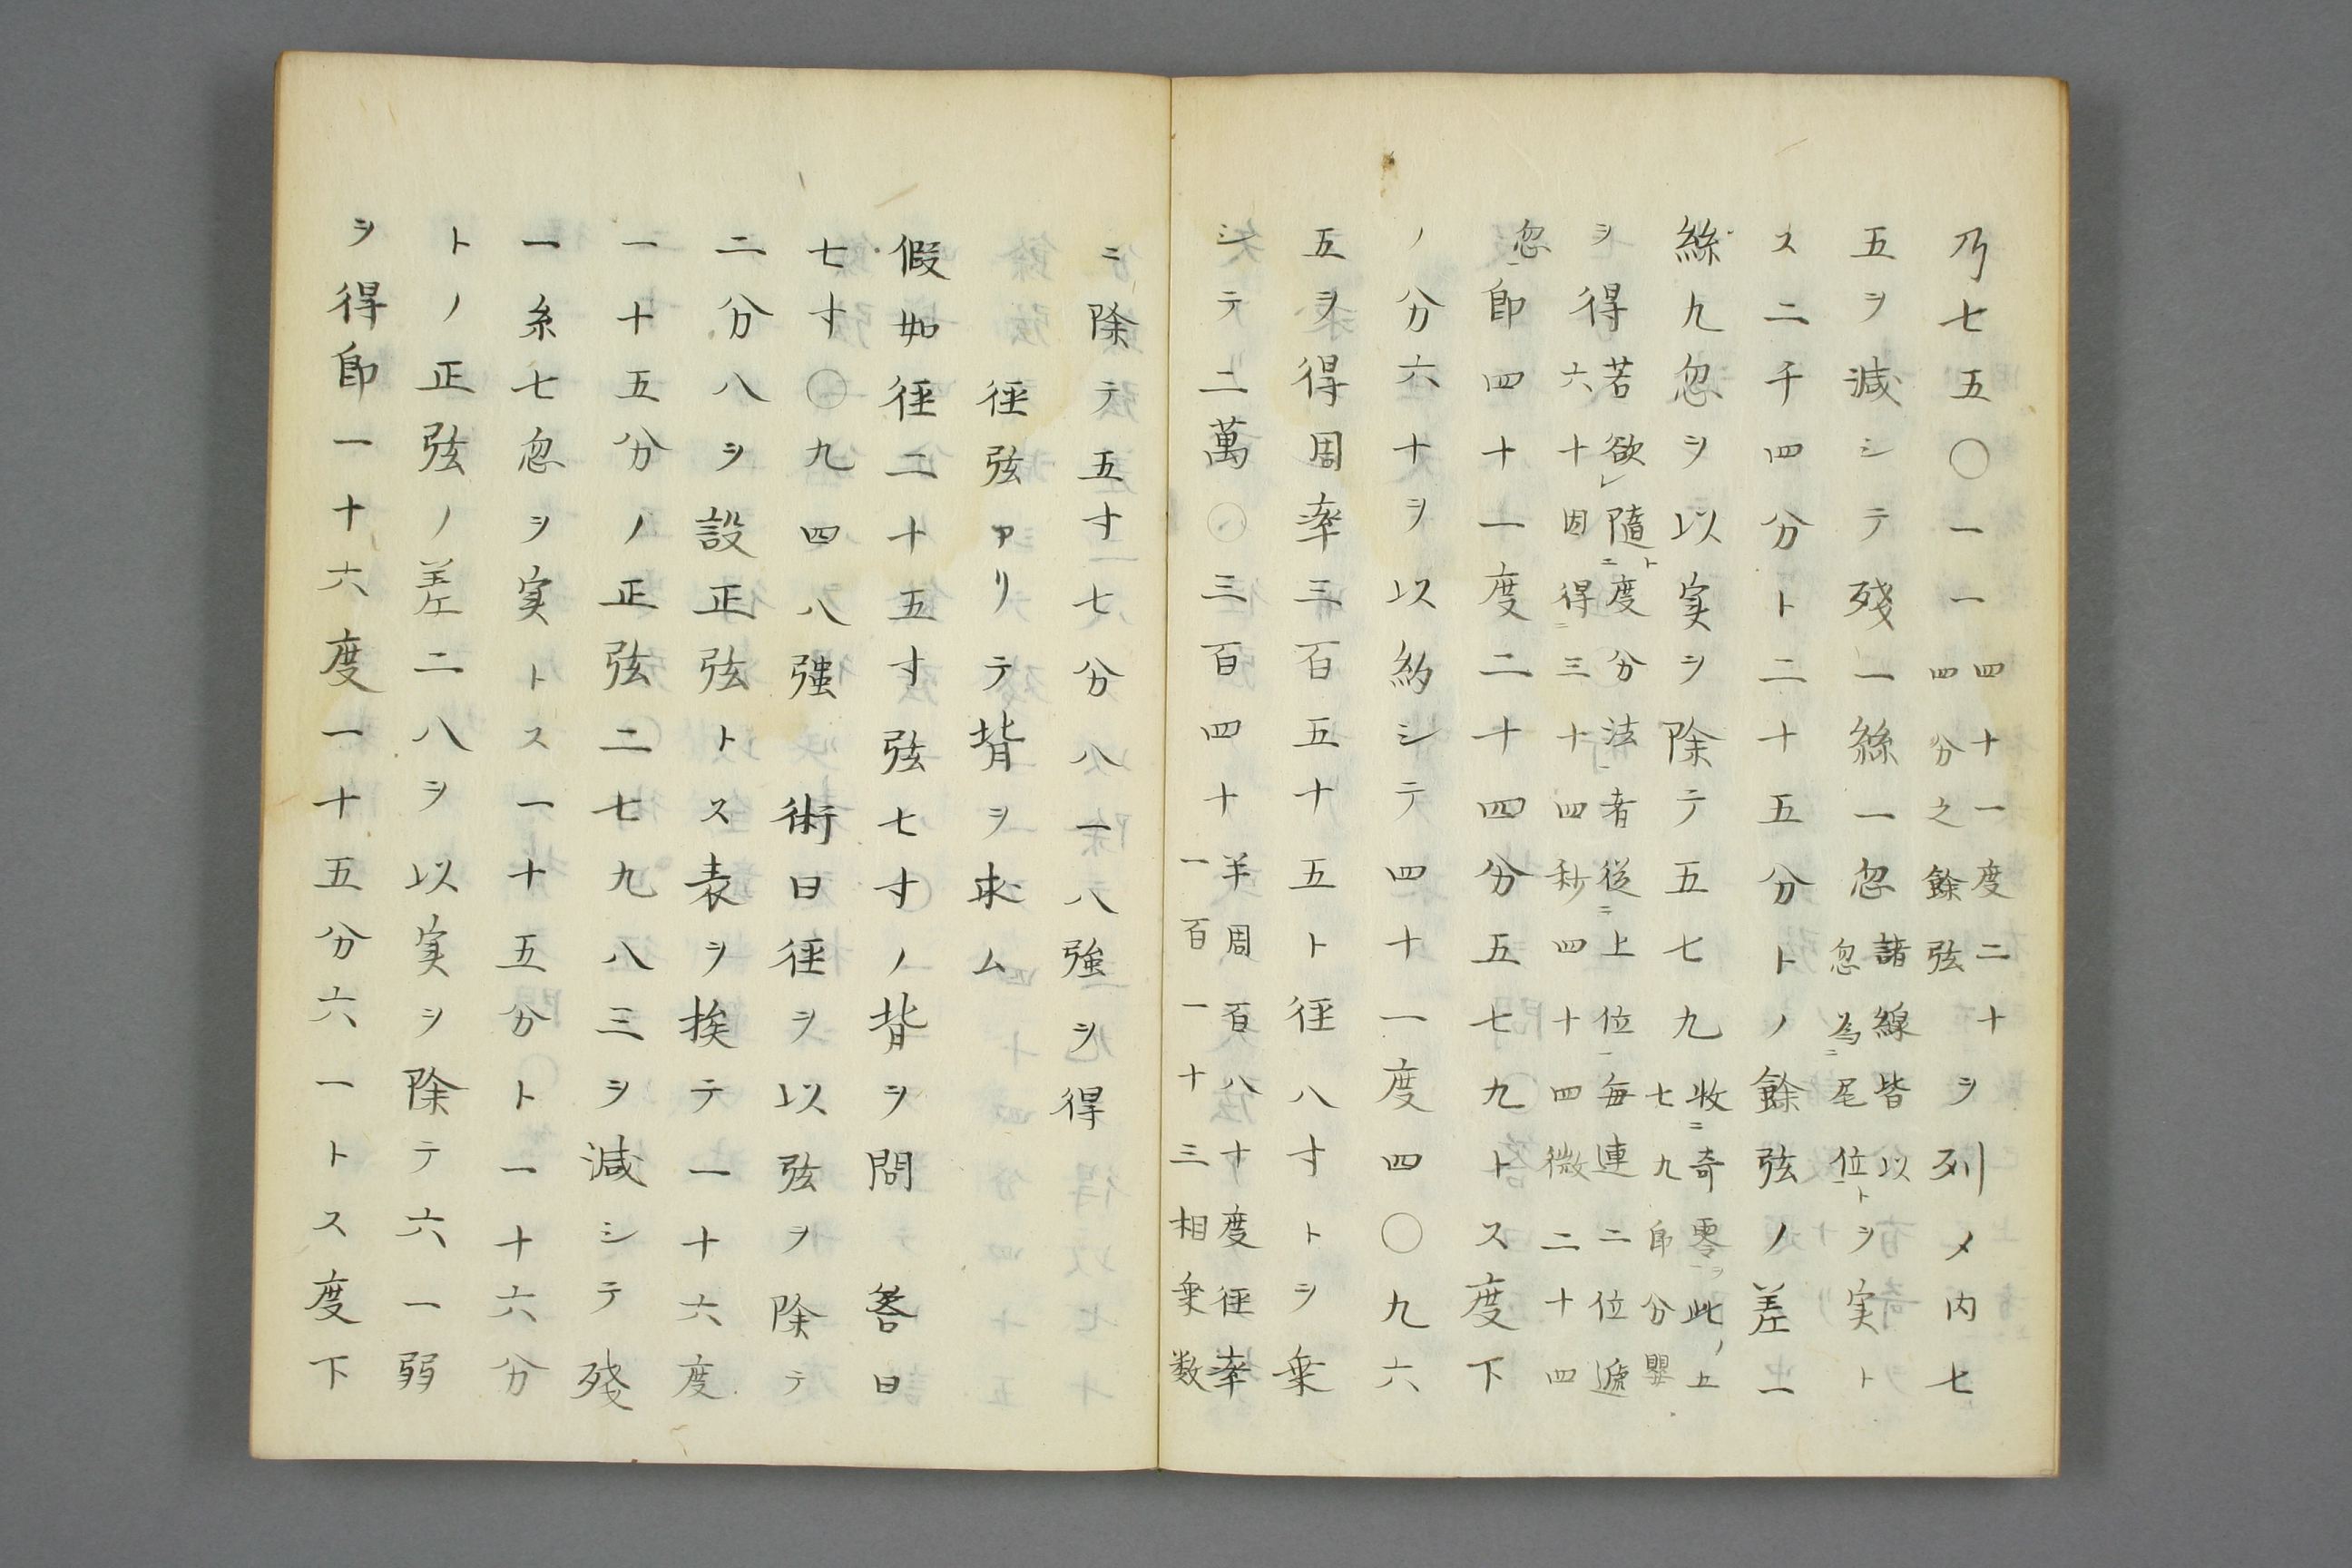 乃七五〇一一四十一度二十四分之餘弦ヲ列メ内七
五ヲ減シテ殘一絲一忽諸線皆以忽為二尾位一トヲ実ト
ス二千四分ト二十五分トノ餘弦ノ差一
絲九忽ヲ以実ヲ除テ五七九收二奇零一ヲ此ノ上七九即分
ヲ得若欲レ隨二ト度分法一者從二上位一毎連二位遞六十因得二三十四秒四十四微二十四
忽一即四十一度二十四分五七九トス度下
ノ分六十ヲ以約シテ四十一度四〇九六
五ヲ得周率三百五十五ト径八寸トヲ乗
シテ二萬〇三百四十半周百八十度径率一百一十三相乗数
ニ除テ五寸七分八一八強ヲ得
径弦アリテ背ヲ求ム
假如径二十五寸弦七寸ノ背ヲ問 答曰
七寸〇九四八強 術曰径ヲ以弦ヲ除テ
二分八ヲ設正弦トス表ヲ挨テ一十六度
一十五分ノ正弦二七九八三ヲ減シテ殘
一糸七忽ヲ実トス一十五分ト一十六分
トノ正弦ノ差二八ヲ以実ヲ除テ六一弱
ヲ得即一十六度一十五分六一トス度下